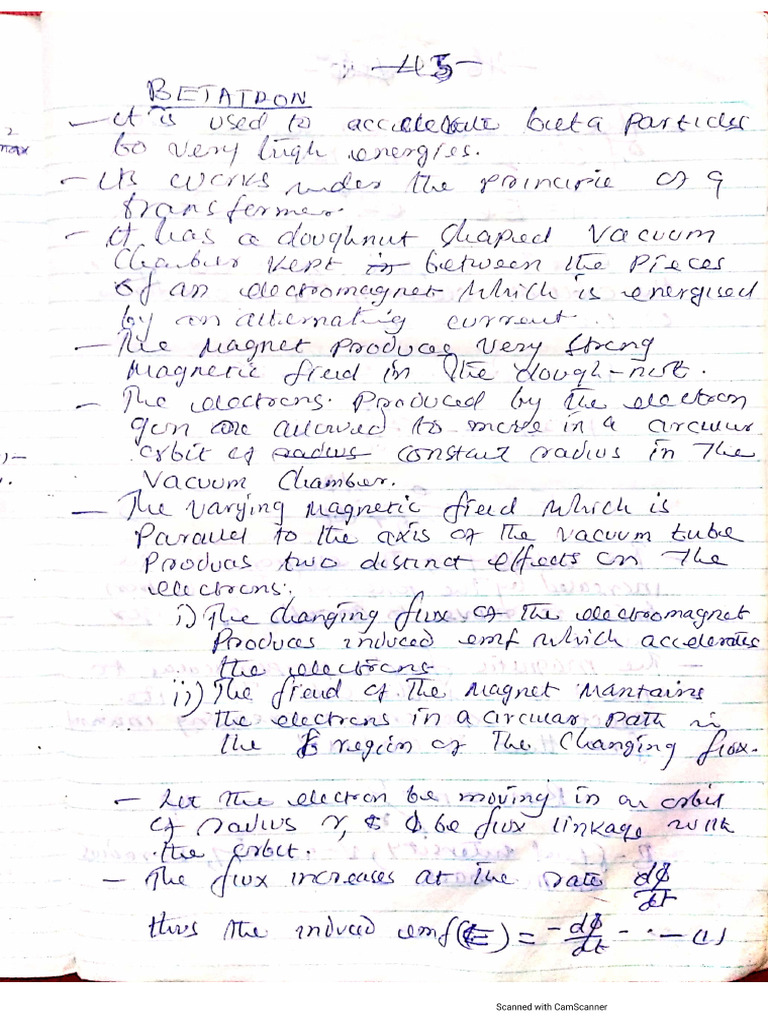 -45-
BETATRON
- It is used to accelerate beta particles
to very high energies.
- It works under the principle of a
transformer.
- It has a doughnut shaped vacuum
Chamber kept between the pieces
of an electromagnet which is energised
by an alternating current.
- The magnet produces very strong
magnetic field in the dough-nut.
- The electrons. Produced by the electron
gun are allowed to move in a circular
orbit of radius constant radius in the
Vacuum Chamber.
- The varying magnetic field which is
Parallel to the axis of the vacuum tube
Produces two distinct effects on the
electrons.
i) The changing flux of the electromagnet
Produces induced emf which accelerates
the electrons
ii) The field of the magnet mantains
the electrons in a circular path in
the region of the changing flux.
- Let the electron be moving in an orbit
of radius r, & ϕ be flux linkage with
the orbit.
- The flux increases at the rate dϕ/dt
thus the induced emf (E) = -dϕ/dt - . - (1)
max
Scanned with CamScanner